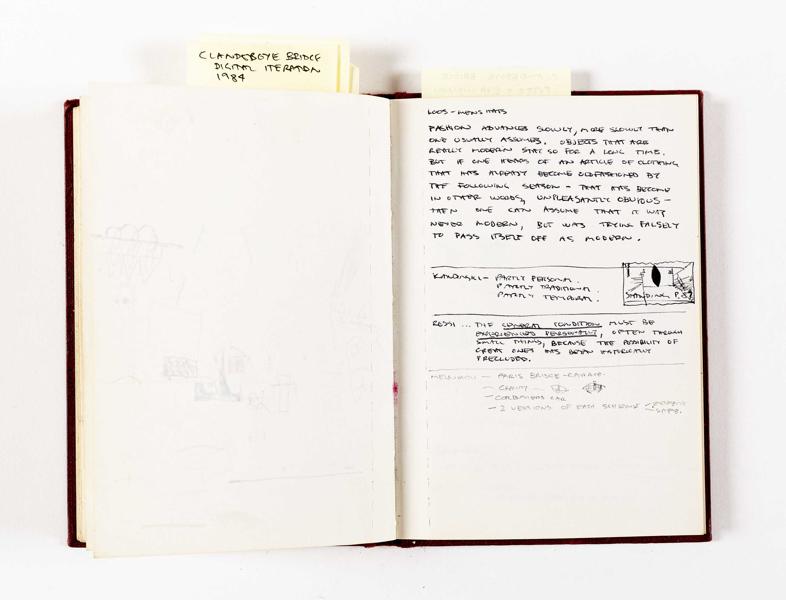 CLANDEBOYE BRIDGE
DIGITAL ITERATION
1984
LOOS - MENS HATS
FASHION ADVANCES SLOWLY, MORE SLOWLY THAN
ONE USUALLY ASSUMES. OBJECTS THAT ARE
REALLY MODERN STAY SO FOR A LONG TIME.
BUT IF ONE HEARS OF AN ARTICLE OF CLOTHING
THAT HAS ALREADY BECOME OLDFASHIONED BY
THE FOLLOWING SEASON - THAT HAS BECOME
IN OTHER WORDS, UNPLEASANTLY OBVIOUS -
THEN ONE CAN ASSUME THAT IT WAS
NEVER MODERN, BUT WAS TRYING FALSELY
TO PASS ITSELF OFF AS MODERN.
KANDINSKI - PARTLY PERSONAL.
PARTLY TRADITIONAL.
PARTLY TEMPORAL.
ROSSI ... THE GENERAL CONDITION MUST BE
EXPERIENCED PERSONALLY, OFTEN THROUGH
SMALL THINGS, BECAUSE THE POSSIBILITY OF
GREAT ONES HAS BEEN HISTORICALLY
PRECLUDED.
MELNIKOV - PARIS BRIDGE-GARAGE.
- 2 VERSIONS OF EACH SCHEME